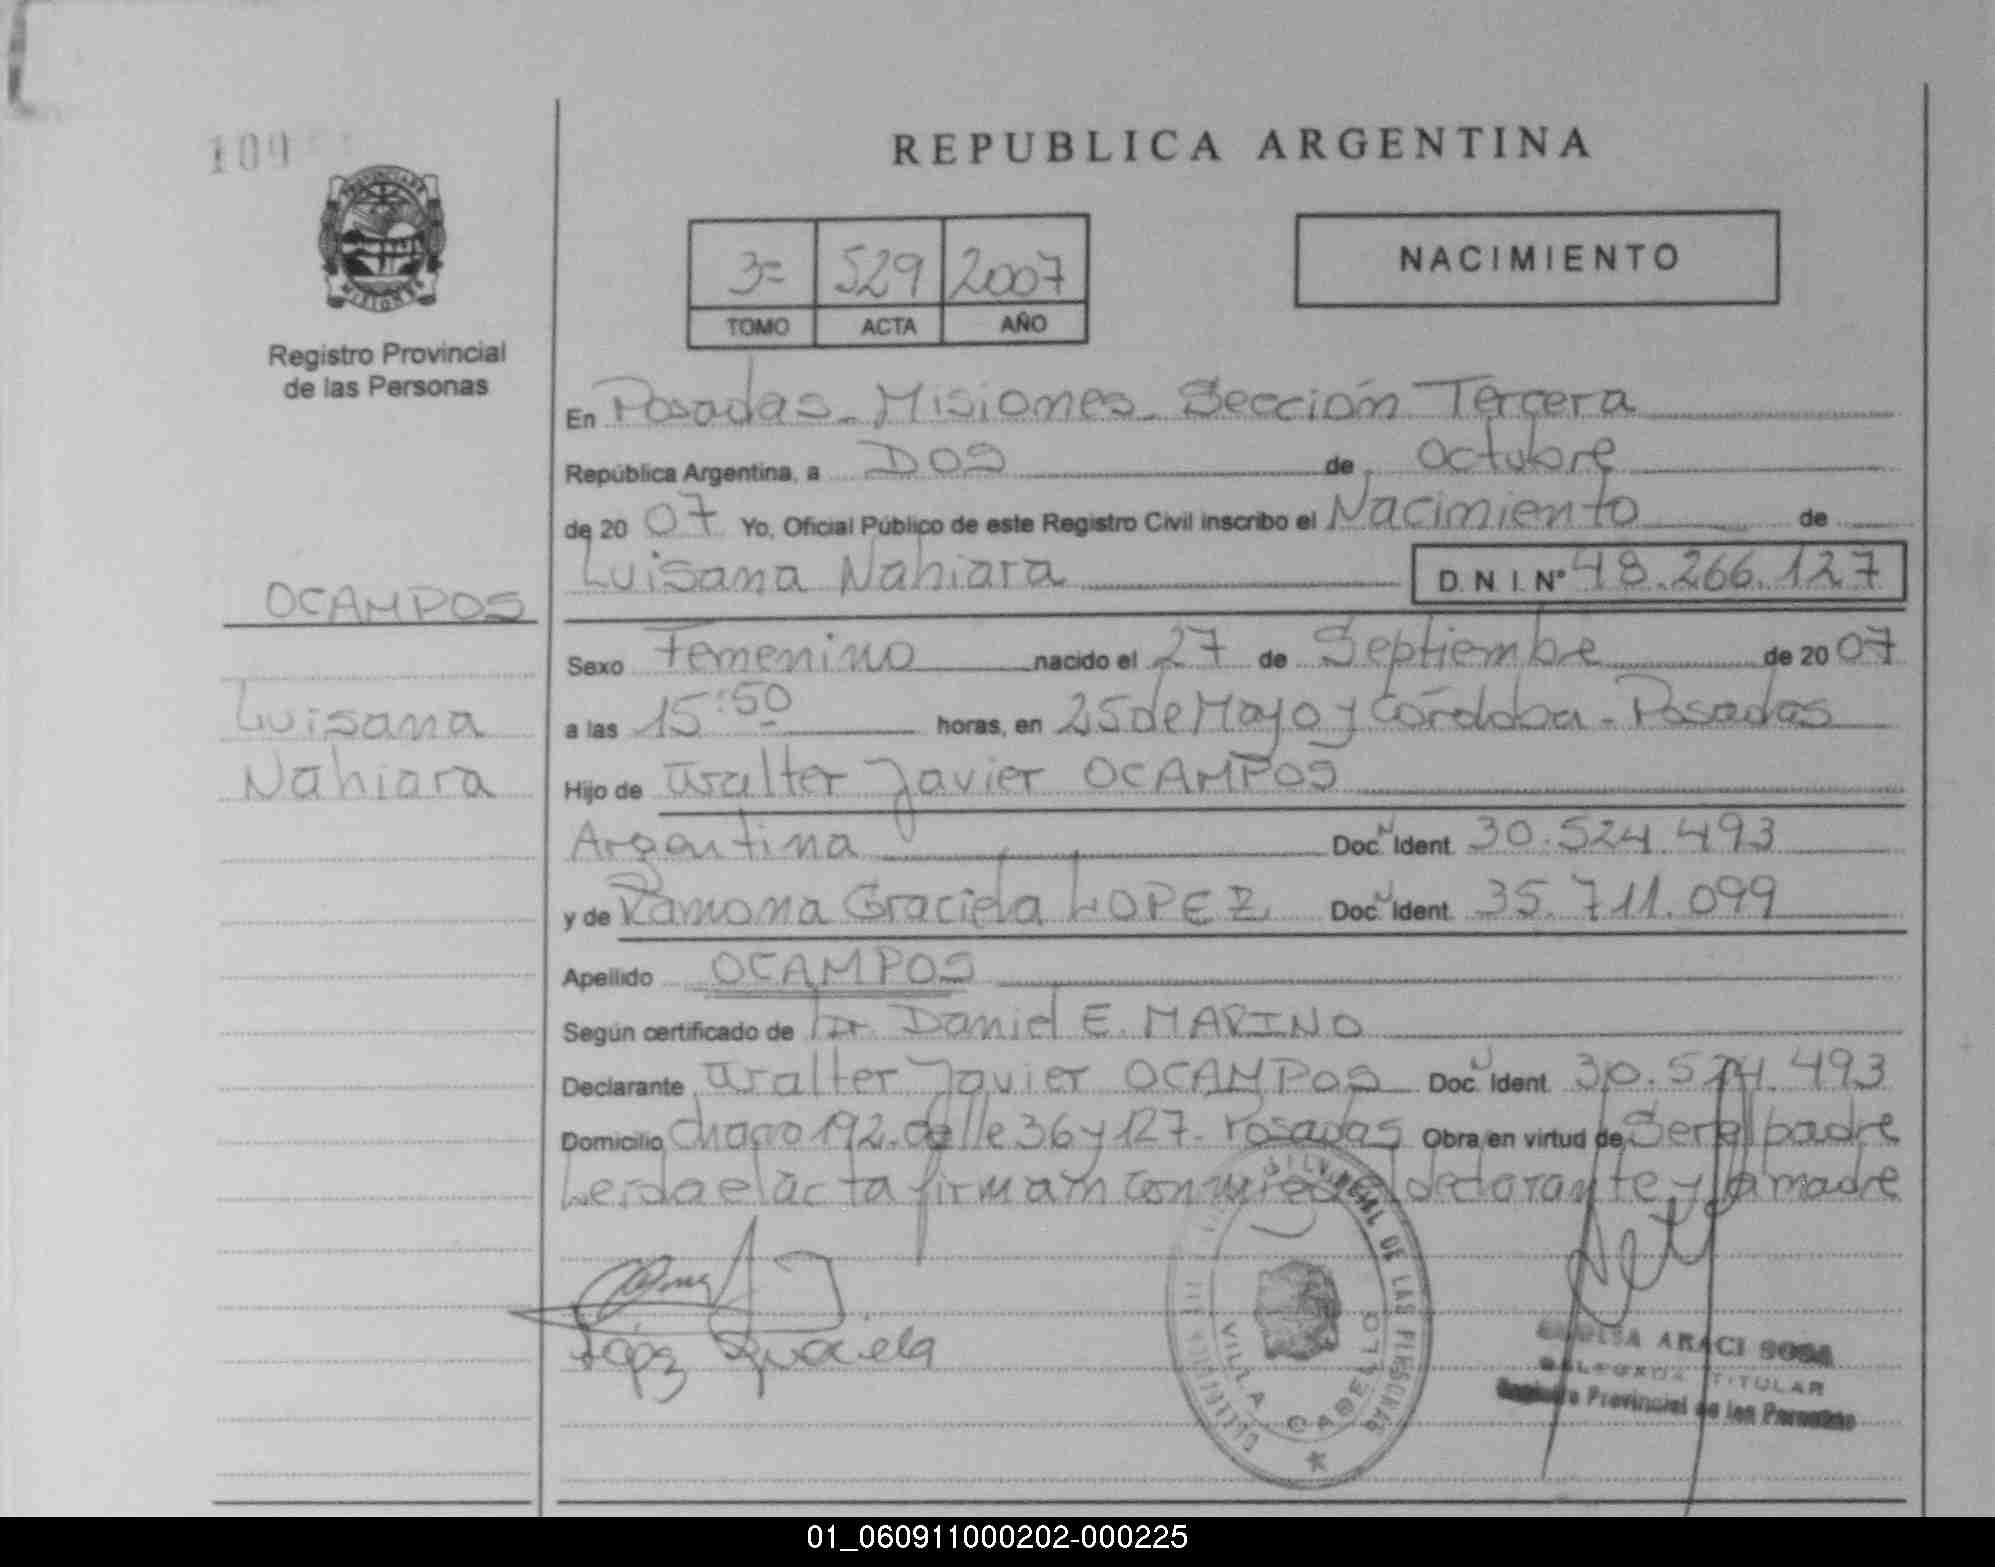 109
REPUBLICA ARGENTINA
PROVINCIA DE
MISIONES
3= 529 2007
TOMO ACTA AÑO
NACIMIENTO
Registro Provincial
de las Personas
En Posadas - Misiones - Sección Tercera
República Argentina, a DOS de Octubre
de 2007 Yo, Oficial Público de este Registro Civil inscribo el Nacimiento de
Luisana Nahiara D.N.I. Nº 48.266.127
OCAMPOS
Luisana
Nahiara
Sexo Femenino nacido el 27 de Septiembre de 2007
a las 15:50 horas, en 25 de Mayo y Córdoba - Posadas
Hijo de Walter Javier OCAMPOS
Argentina Doc. Ident. 30.524.493
y de Ramona Graciela LOPEZ Doc. Ident. 35.711.099
Apellido OCAMPOS
Según certificado de Dr. Daniel E. MARINO
Declarante Walter Javier OCAMPOS Doc. Ident. 30.524.493
Domicilio Chacra 192. Calle 36 y 127. Posadas Obra en virtud de Ser el padre
Leida el acta firman conmigo el declarante y la madre
López Graciela
DE LAS PERSONAS
VILLA CABELLO
ARACI SOSA
DELEGADA TITULAR
Registro Provincial de las Personas
01_060911000202-000225